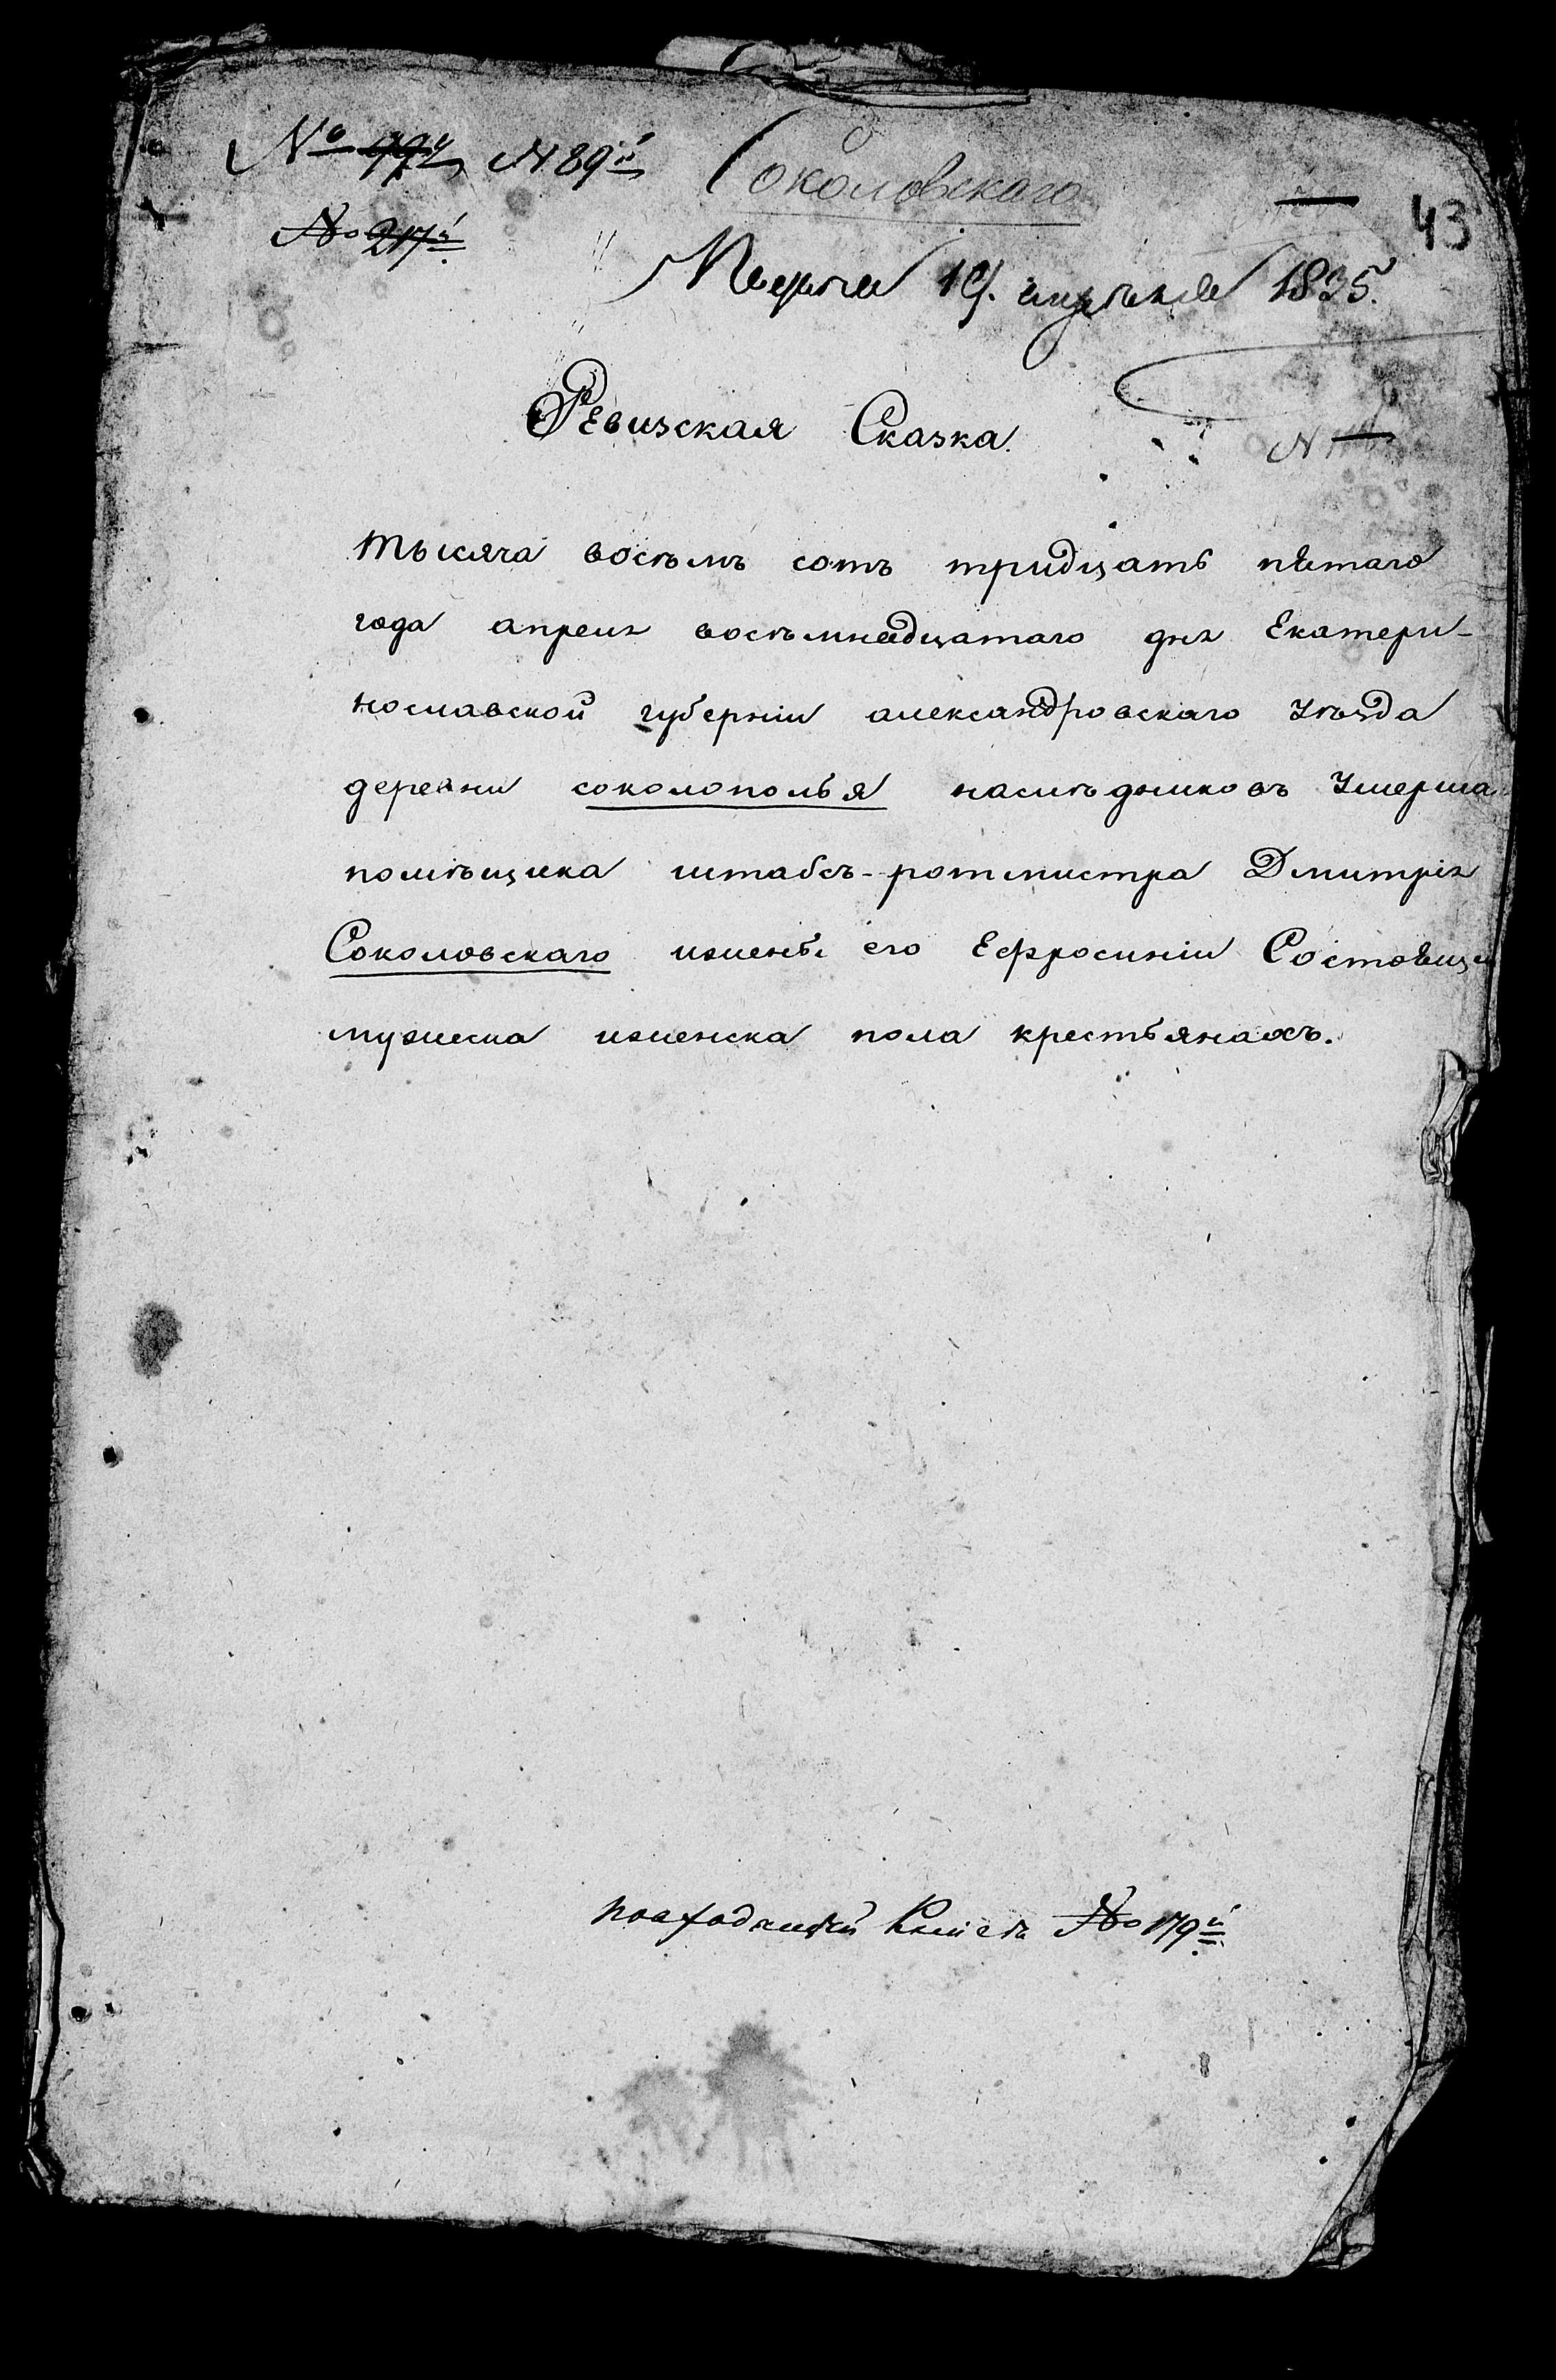 № 99й № 89й Соколовскаго
43
№ 217й
19. апреля 1835.
Ревизская Сказка.
N
тысяча восемь сотъ тридцать пятаго
года апреля восемнадцатаго дня Екатери-
нославской губерніи александровскаго уѣзда
деревни соколополья наследниковъ умерша
помѣщика штабсъ-ротмистра Дмитрія
Соколовскаго жены его Ефросиніи Состоящи
мужеска женска пола крестьянахъ.
По входящей Книгѣ № 179й